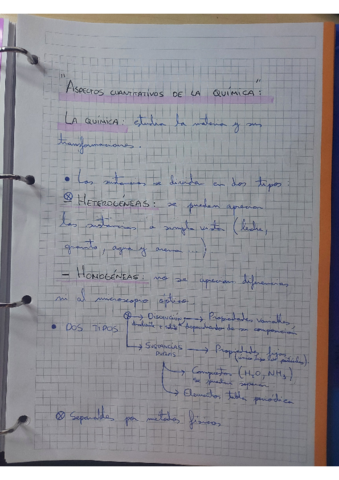 "ASPECTOS CUANTITATIVOS DE LA QUÍMICA":
LA QUÍMICA: estudia la materia y sus
transformaciones.
• Las sustancias se dividen en dos tipos:
⊗ HETEROGÉNEAS: se pueden apreciar
las sustancias a simple vista (leche,
granito, agua y arena ...)
- HOMOGÉNEAS: no se aprecian diferencias
ni al microscopio óptico.
• DOS TIPOS
⊗→ Disolución → Propiedades variables,
dependiendo de su composición
→ SUSTANCIAS PURAS → Propiedades
→ Compuestos (H₂O, NH₃)
se pueden separar
→ Elementos tabla periódica
⊗ Separables por métodos físicos